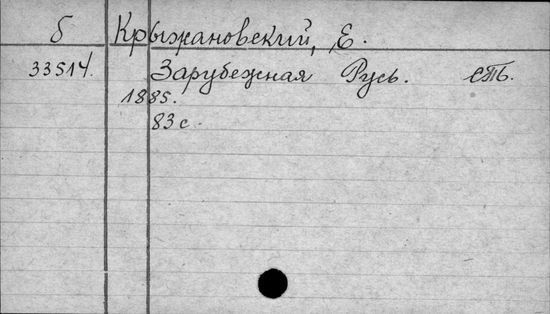 б Крыжановский, Е.
33514. Зарубежная Русь. стб.
1885.
83 с.